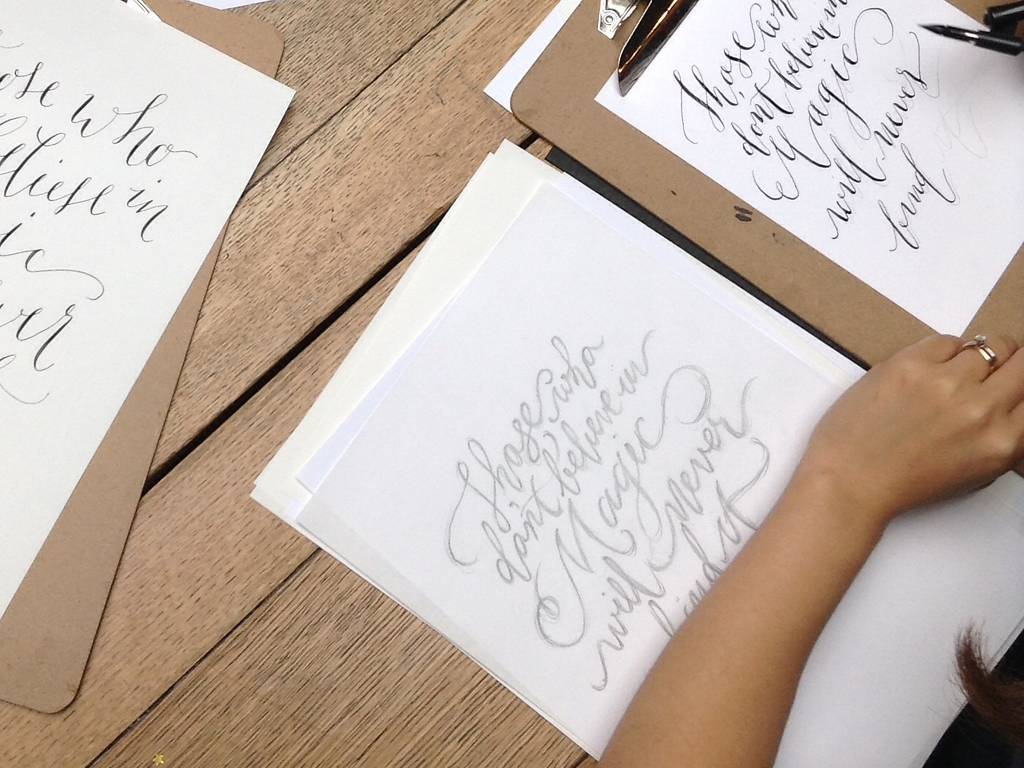 ose who
eliese in
ic
ver
Those who
don't believe in
Magic
will never
find
Those who
don't believe in
Magic
will Never
find it